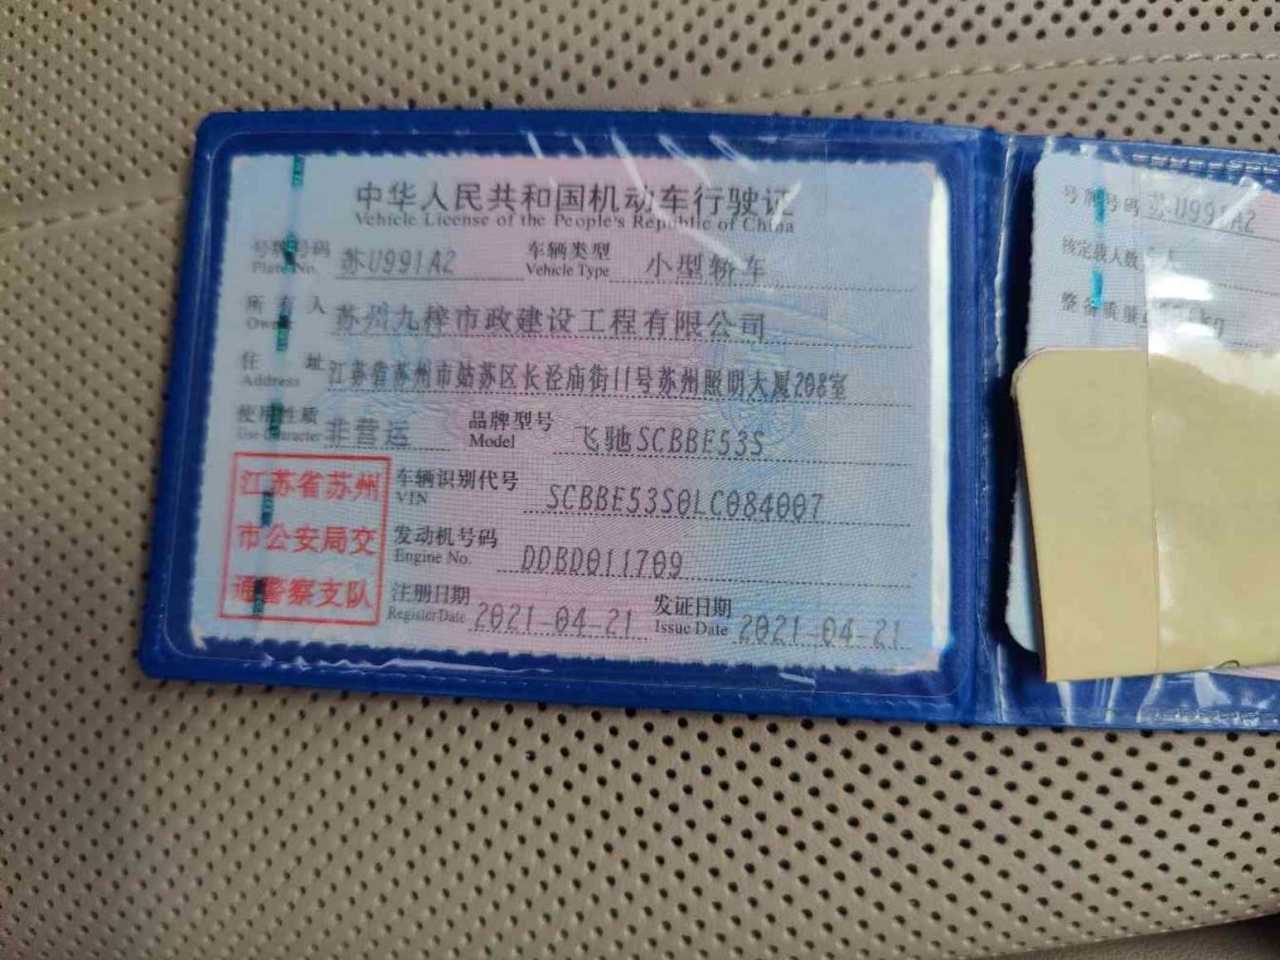 中华人民共和国机动车行驶证
Vehicle License of the People's Republic of China
号牌号码 苏U991A2 车辆类型 小型轿车
Plate No. Vehicle Type
所有人 苏州九梓市政建设工程有限公司
Owner
住址 江苏省苏州市姑苏区长泾庙街11号苏州照明大厦208室
Address
使用性质 非营运 品牌型号 飞驰SCBBE53S
Use Character Model
江苏省苏州
市公安局交
通警察支队
车辆识别代号 SCBBE53S0LC084007
VIN
发动机号码 DDBD011709
Engine No.
注册日期 2021-04-21 发证日期 2021-04-21
Register Date Issue Date
号牌号码 苏U991A2
核定载人数
整备质量